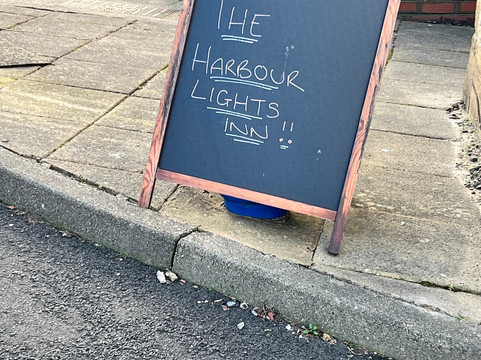 THE
HARBOUR
LIGHTS
INN!!